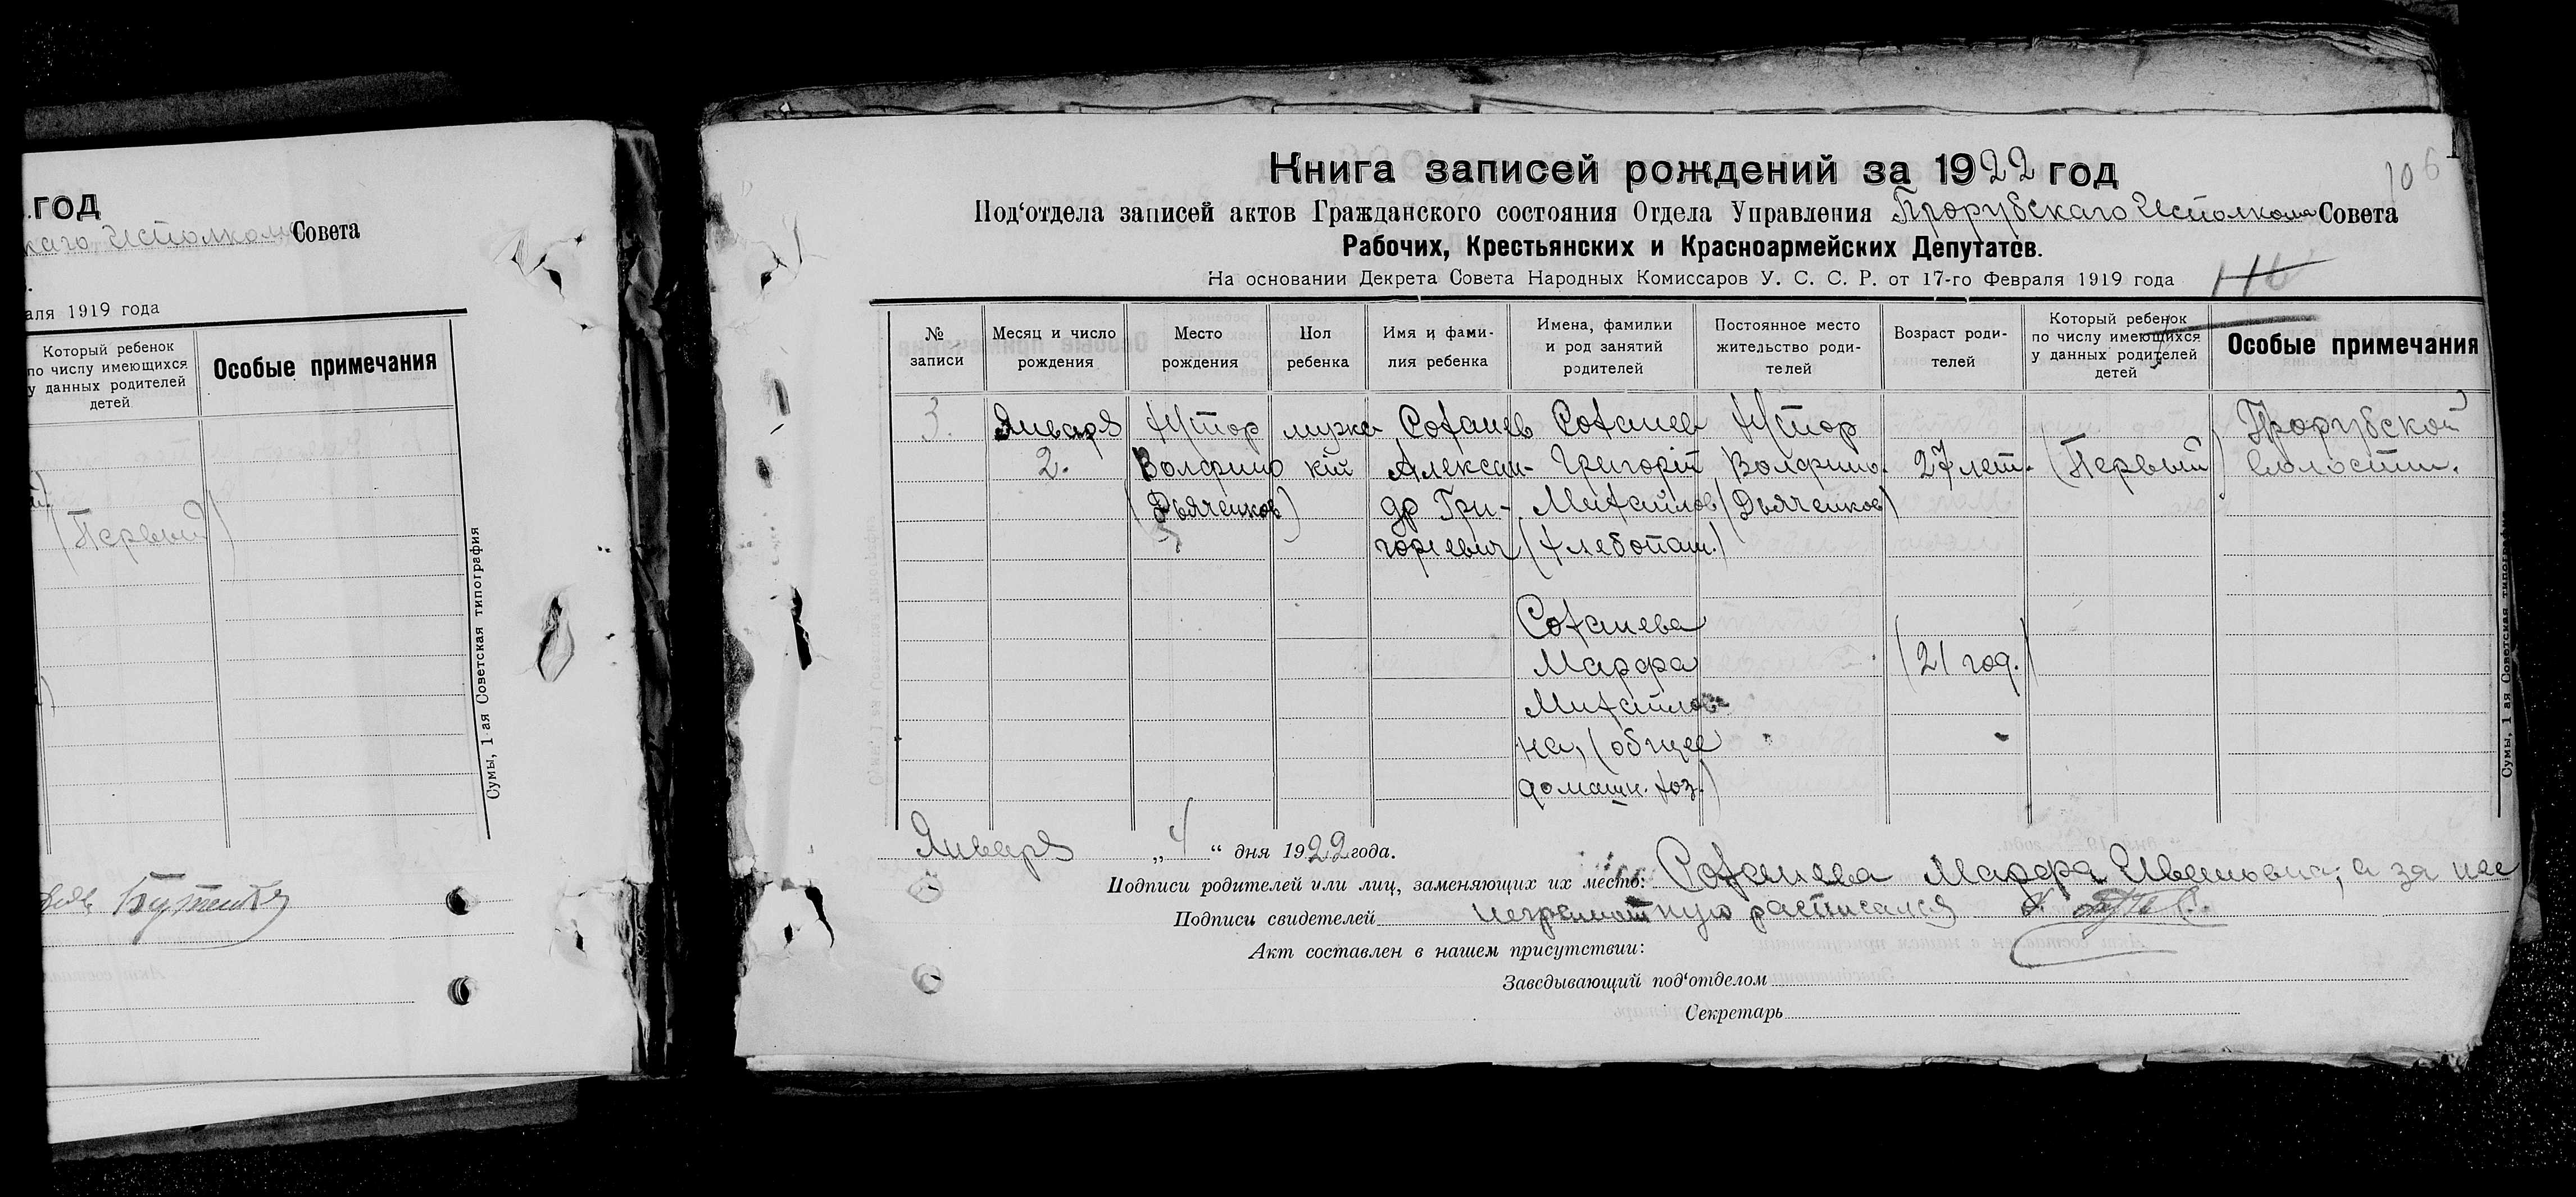 .год
каго Исполкома Совета
аля 1919 года
Который ребенок
по числу имеющихся
у данных родителей
детей
Особые примечания
(Первый)
Сумы, 1-ая Советская типография
Бутенко
106
Книга записей рождений за 1922 год
Под‘отдела записей актов Гражданского состояния Отдела Управления Прорубскаго Исполкома Совета
Рабочих, Крестьянских и Красноармейских Депутатов.
На основании Декрета Совета Народных Комиссаров У. С. С. Р. от 17-го Февраля 1919 года
№
записи
Месяц и число
рождения
Место
рождения
Пол
ребенка
Имя и фами-
лия ребенка
Имена, фамилии
и род занятий
родителей
Постоянное место
жительство роди-
телей
Возраст роди-
телей
Который ребенок
по числу имеющихся
у данных родителей
детей
Особые примечания
3.
Января
2.
Хутор
Волфино
(Дьяченков)
мужс
кій
Соханев
Алексан-
др Гри-
горіевич
Соханев
Григорій
Михайлов
(хлебопаш.)
Соханева
Марфа
Михайлов-
на, (общее
домашн. хоз.)
Хутор
Волфино.
(Дьяченков)
27 лет.
(21 год.)
(Первый)
Прорубской
волости.
Января „4“ дня 1922 года.
Подписи родителей или лиц, заменяющих их место: Соханева Марфа Ивановна, а за нее
Подписи свидетелей неграмотную расписался
Акт составлен в нашем присутствии:
Заведывающий под‘отделом
Секретарь
Сумы, 1 ая Советская типография